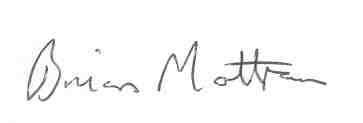 Brian Mottram